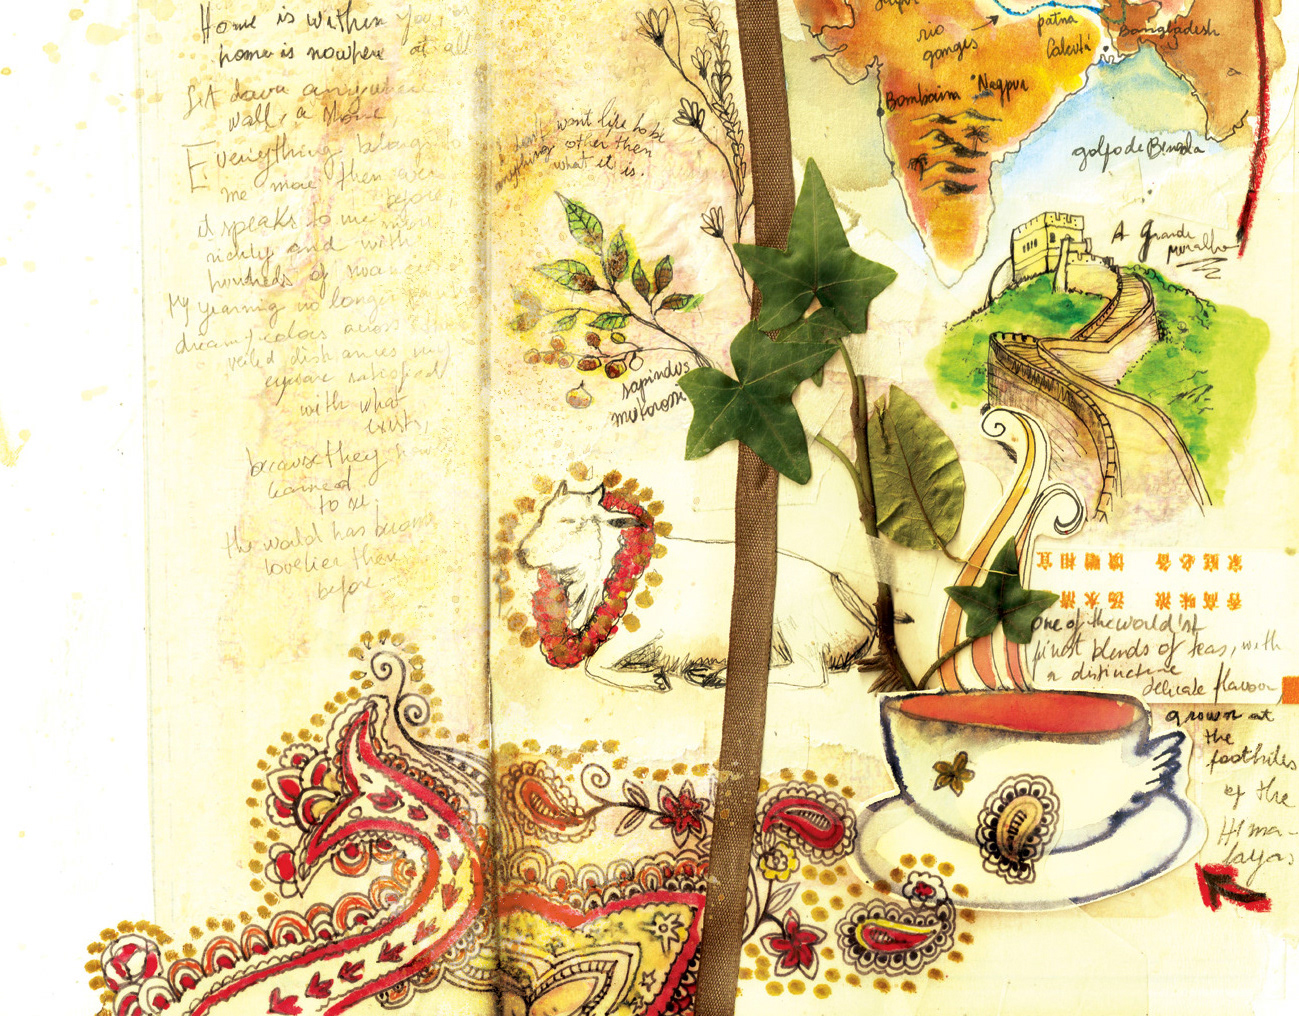 Home is within you, or
home is nowhere at all
Sit down anywhere
wall, a stone,
Everything belongs
me more then ever
before,
it speaks to me more
richly and with
hundreds of
My yearning no longer
dream, colors across
veiled distances, my
eyes are satisfied
with what
exists,
because they have
learned
to see.
the world has become
lovelier then
before.
I don't want life to be
anything other then
what it is.
sapindus
mukorossi
rio
ganges
patna
Calcutá
Bangladesh
Bombaim
Nagpur
golfo de Bengala
A grande
muralha
家庭必备 馈赠相宜
香高味浓 汤水清
one of the world'st
finest blends of teas, with
a distinctive
delicate flavour
grown at
the
foothiles
of the
Hima-
layas